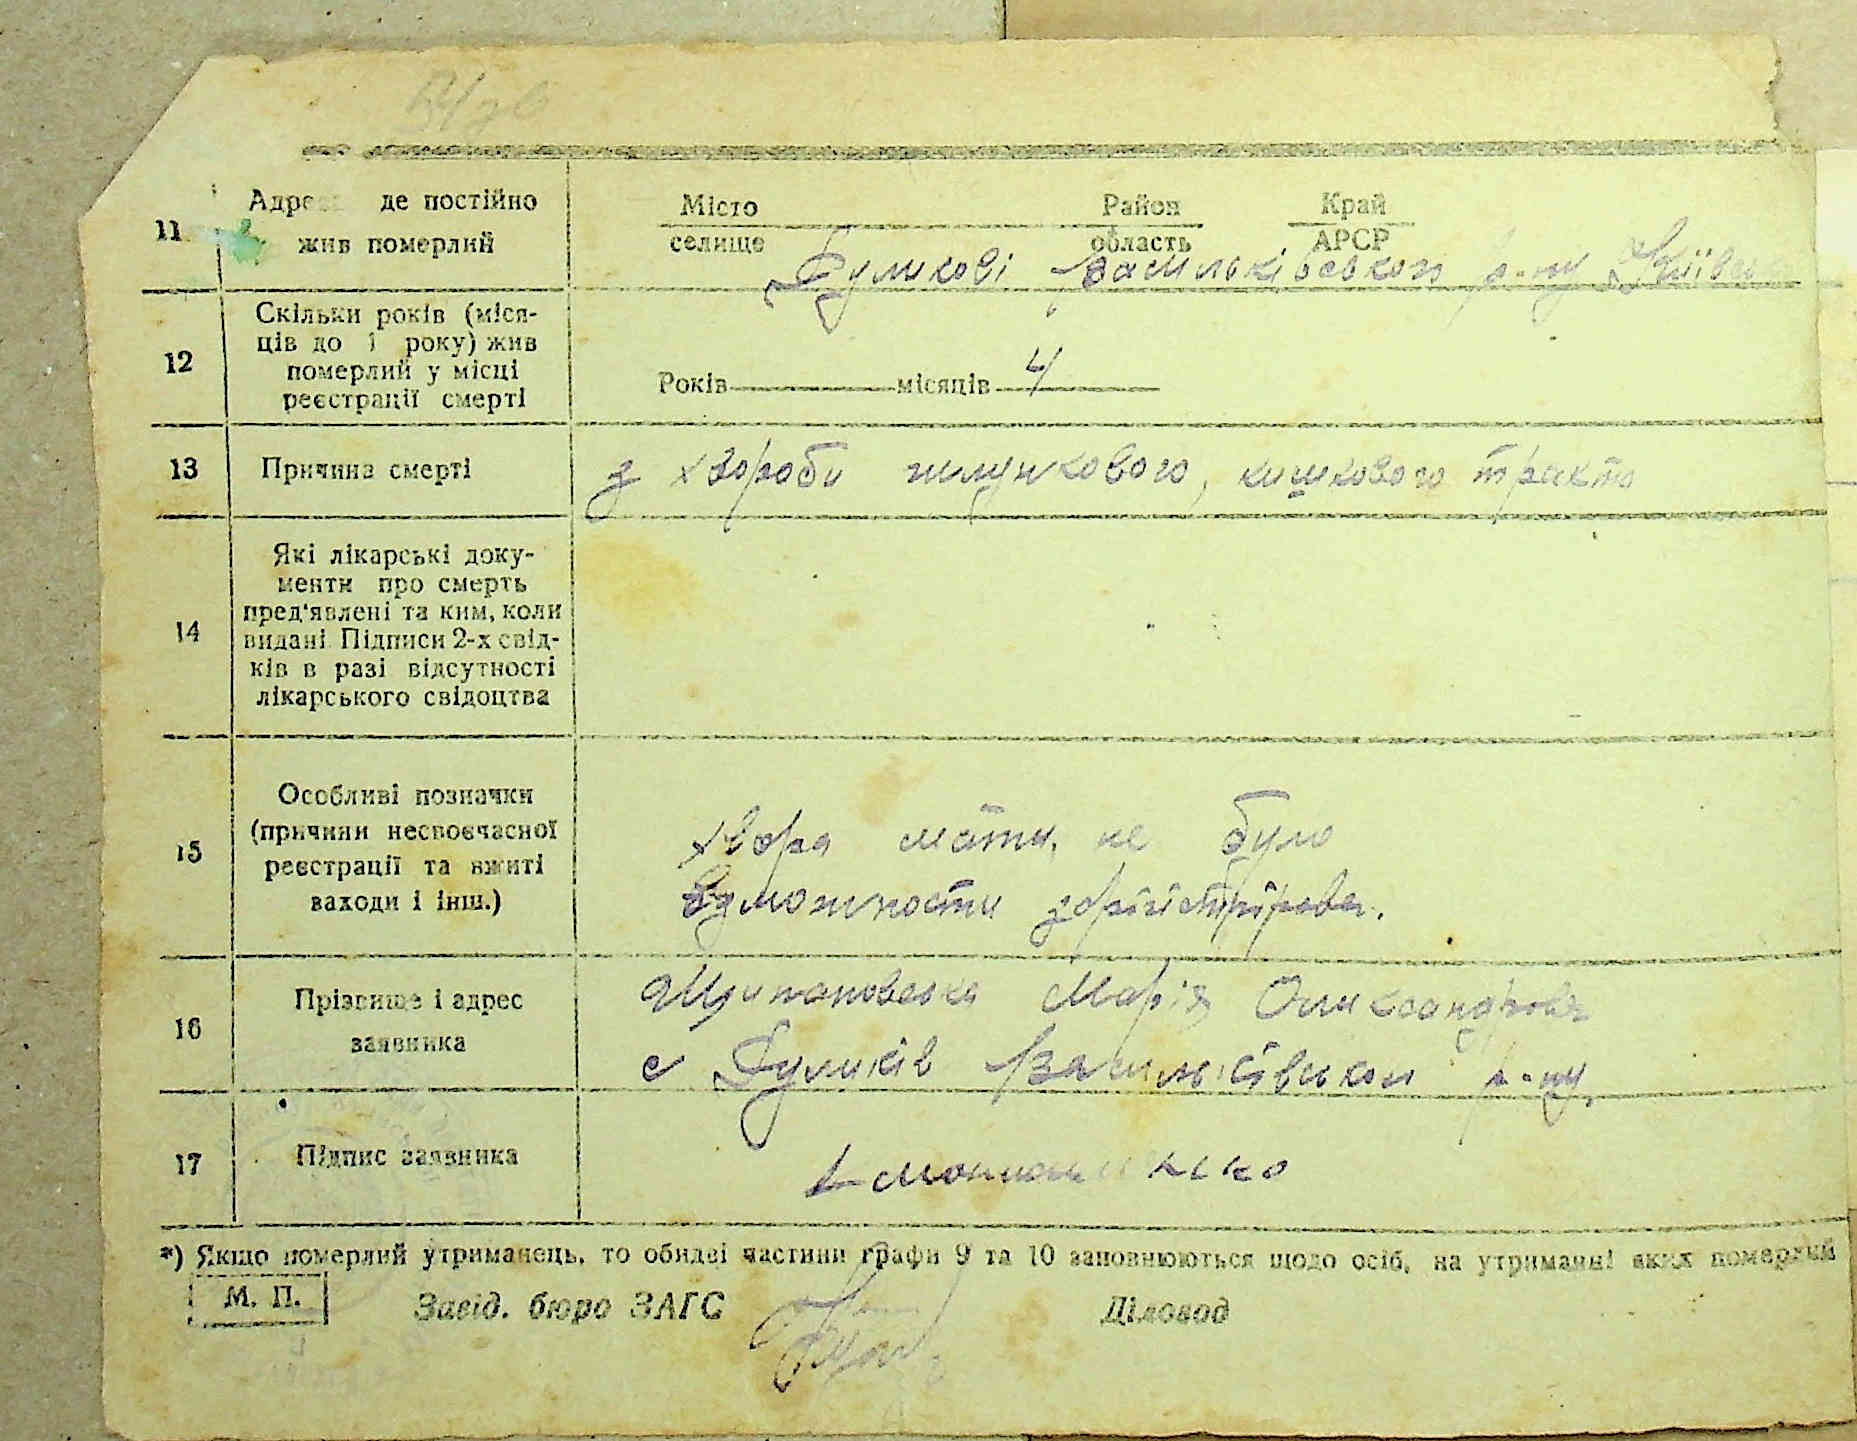 11
Адреса де постійно
жив померлий
Місто
селище
Район
область
Край
АРСР
Дулікові Васильківського р-ну Київсь
12
Скільки років (міся-
ців до 1 року) жив
померлий у місці
реєстрації смерті
Років місяців 4
13
Причина смерті
з хвороби шлункового, кишкового тракта
14
Які лікарські доку-
менти про смерть
пред'явлені та ким, коли
видані Підписи 2-х свід-
ків в разі відсутності
лікарського свідоцтва
15
Особливі позначки
(причини несвоєчасної
реєстрації та вжиті
заходи і інш.)
хвора мати, не було
16
Прізвище і адрес
заявника
Марія Олександровна
с Дуліків Васильківського р-ну
17
Підпис заявника
*) Якщо померлий утриманець, то обидві частини графи 9 та 10 заповнюються щодо осіб, на утриманні яких померлий
М. П.
Завід. бюро ЗАГС Діловод